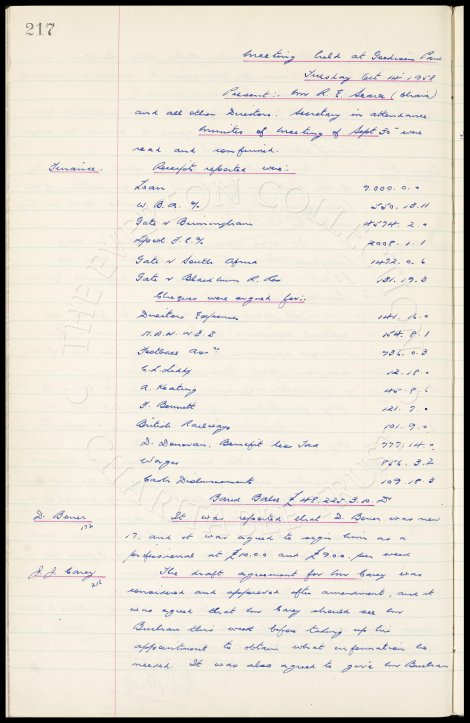 217
Meeting held at Goodison Park
Tuesday Oct 14 1958
Present:- Mr R. E. Searle (Chair)
and all other Directors. Secretary in attendance.
Minutes of Meeting of Sept 30 were
read and confirmed.
Finance. Receipts reported were:-
Loan 7,000. 0. 0
W. B. A. % 550. 18. 11
Gate v Birmingham 4574. 2. 0
Lpool F.C. % 2008. 1. 1
Gate v South Africa 1472. 0. 6
Gate v Blackburn R. Res 131. 19. 3
Cheques were signed for:-
Directors Expenses 141. 16. 0
154. 8. 1
Football Assn 736. 0. 3
12. 18. 0
A. Keating 45. 8. 6
F. Bennett 121. 7. 0
British Railways 101. 9. 0
D. Donovan, Benefit less Tax 777. 14. 0
Wages 856. 3. 2
Cash Disbursements 109. 18. 3
£48,225. 3. 10.
It was reported that D. was now
17. and it was agreed to sign him as a
professional at £10.0.0 and £9.0.0. per week
J. J. Carey The draft agreement for Mr Carey was
216 considered and approved after amendment, and it
was agreed that Mr Carey should see Mr
Buchan this week before taking up his
appointment to obtain what information he
needed. It was also agreed to give Mr Buchan
THE EVERTON COLLECTION
CHARITABLE TRUST